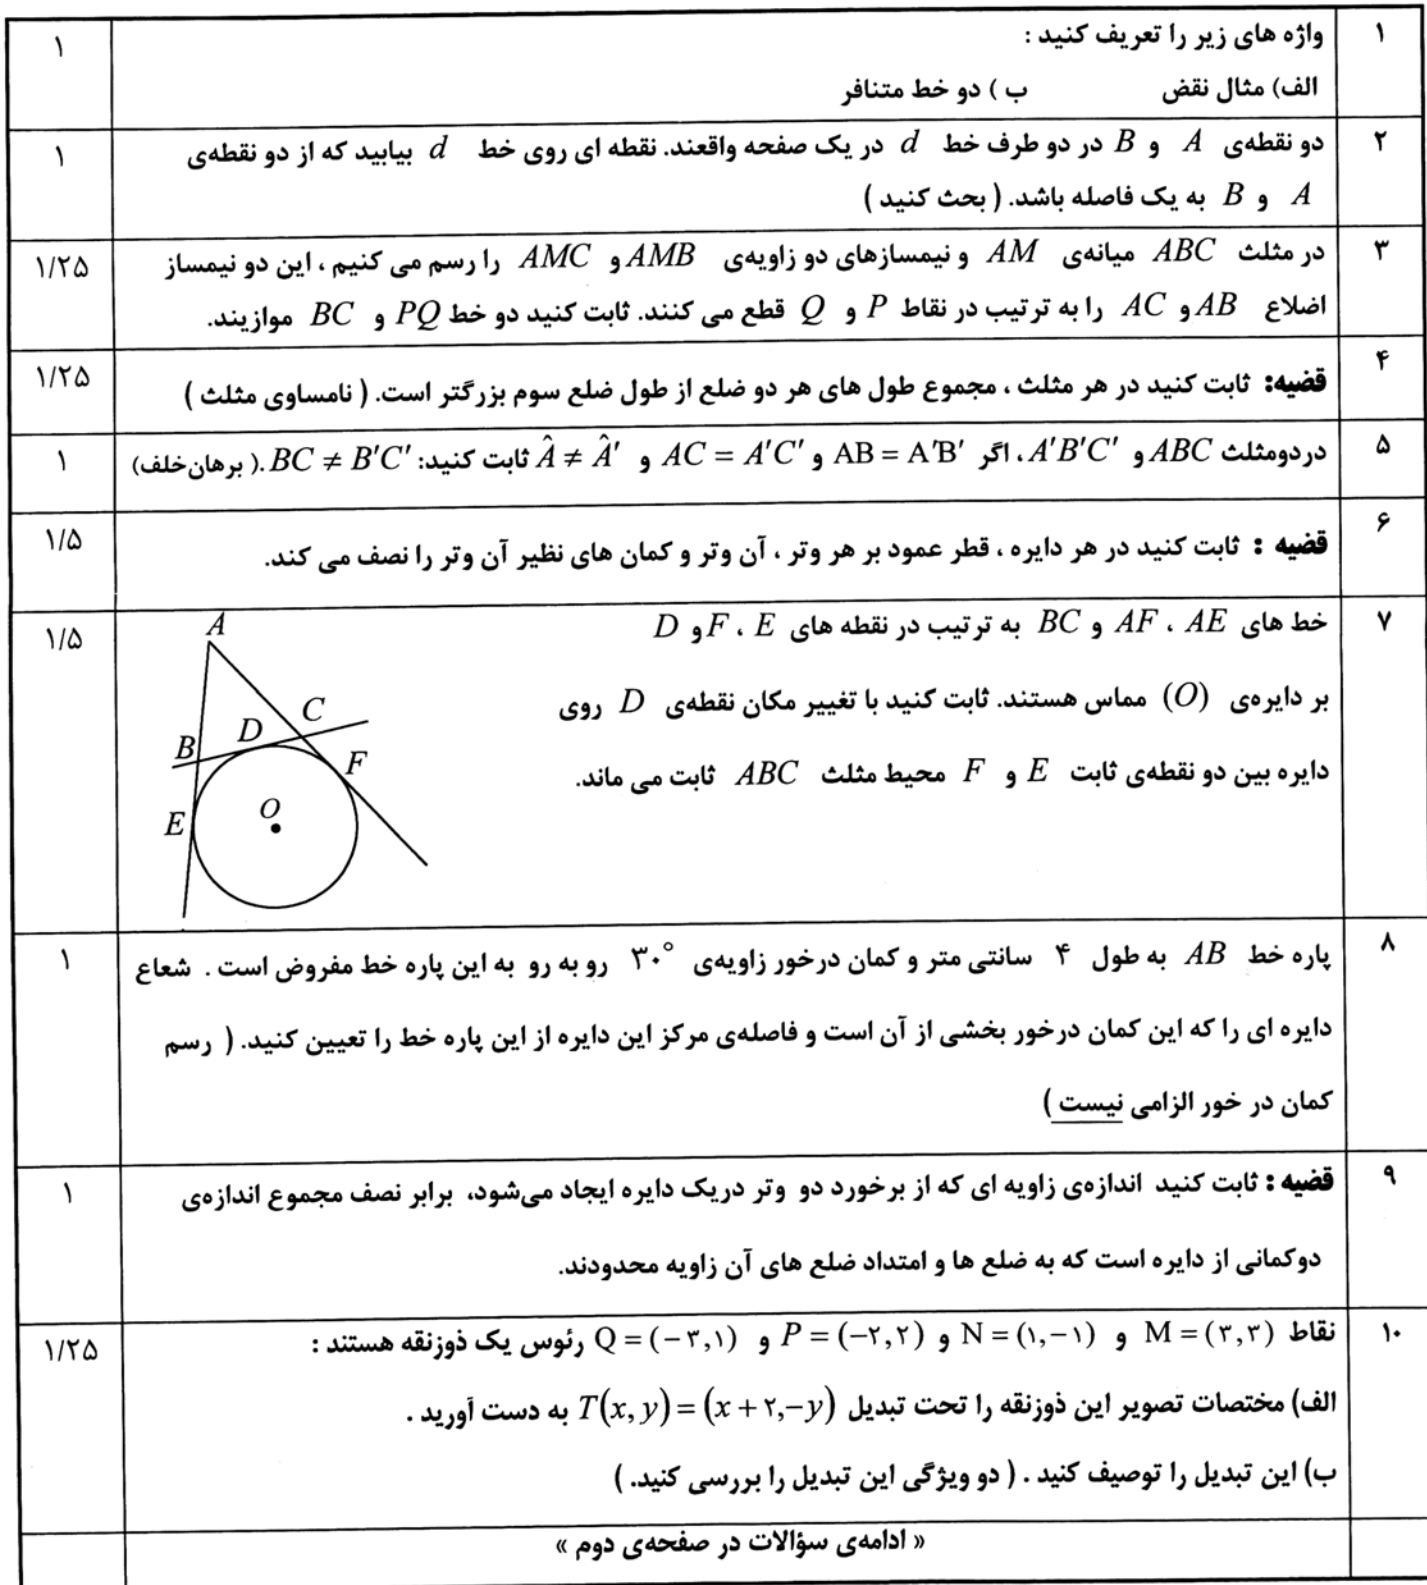 ۱ واژه های زیر را تعریف کنید : ۱
الف) مثال نقض ب ) دو خط متنافر
۲ دو نقطه‌ی A و B در دو طرف خط d در یک صفحه واقعند. نقطه ای روی خط d بیابید که از دو نقطه‌ی ۱
A و B به یک فاصله باشد. ( بحث کنید )
۳ در مثلث ABC میانه‌ی AM و نیمسازهای دو زاویه‌ی AMB و AMC را رسم می کنیم ، این دو نیمساز ۱/۲۵
اضلاع AB و AC را به ترتیب در نقاط P و Q قطع می کنند. ثابت کنید دو خط PQ و BC موازیند.
۴ قضیه: ثابت کنید در هر مثلث ، مجموع طول های هر دو ضلع از طول ضلع سوم بزرگتر است. ( نامساوی مثلث ) ۱/۲۵
۵ دردومثلث ABC و A′B′C′، اگر AB = A′B′ و AC = A′C′ و Â ≠ Â′ ثابت کنید: BC ≠ B′C′ .( برهان خلف) ۱
۶ قضیه : ثابت کنید در هر دایره ، قطر عمود بر هر وتر ، آن وتر و کمان های نظیر آن وتر را نصف می کند. ۱/۵
۷ خط های AE ، AF و BC به ترتیب در نقطه های E ، F و D ۱/۵
بر دایره‌ی (O) مماس هستند. ثابت کنید با تغییر مکان نقطه‌ی D روی
دایره بین دو نقطه‌ی ثابت E و F محیط مثلث ABC ثابت می ماند.
A
C
D
B
F
O
E
۸ پاره خط AB به طول ۴ سانتی متر و کمان درخور زاویه‌ی ۳۰° رو به رو به این پاره خط مفروض است . شعاع ۱
دایره ای را که این کمان درخور بخشی از آن است و فاصله‌ی مرکز این دایره از این پاره خط را تعیین کنید. ( رسم
کمان در خور الزامی نیست )
۹ قضیه : ثابت کنید اندازه‌ی زاویه ای که از برخورد دو وتر دریک دایره ایجاد می‌شود، برابر نصف مجموع اندازه‌ی ۱
دوکمانی از دایره است که به ضلع ها و امتداد ضلع های آن زاویه محدودند.
۱۰ نقاط M = (۳,۳) و N = (۱,−۱) و P = (−۲,۲) و Q = (−۳,۱) رئوس یک ذوزنقه هستند : ۱/۲۵
الف) مختصات تصویر این ذوزنقه را تحت تبدیل T(x, y) = (x + ۲,−y) به دست آورید .
ب) این تبدیل را توصیف کنید . ( دو ویژگی این تبدیل را بررسی کنید. )
« ادامه‌ی سؤالات در صفحه‌ی دوم »